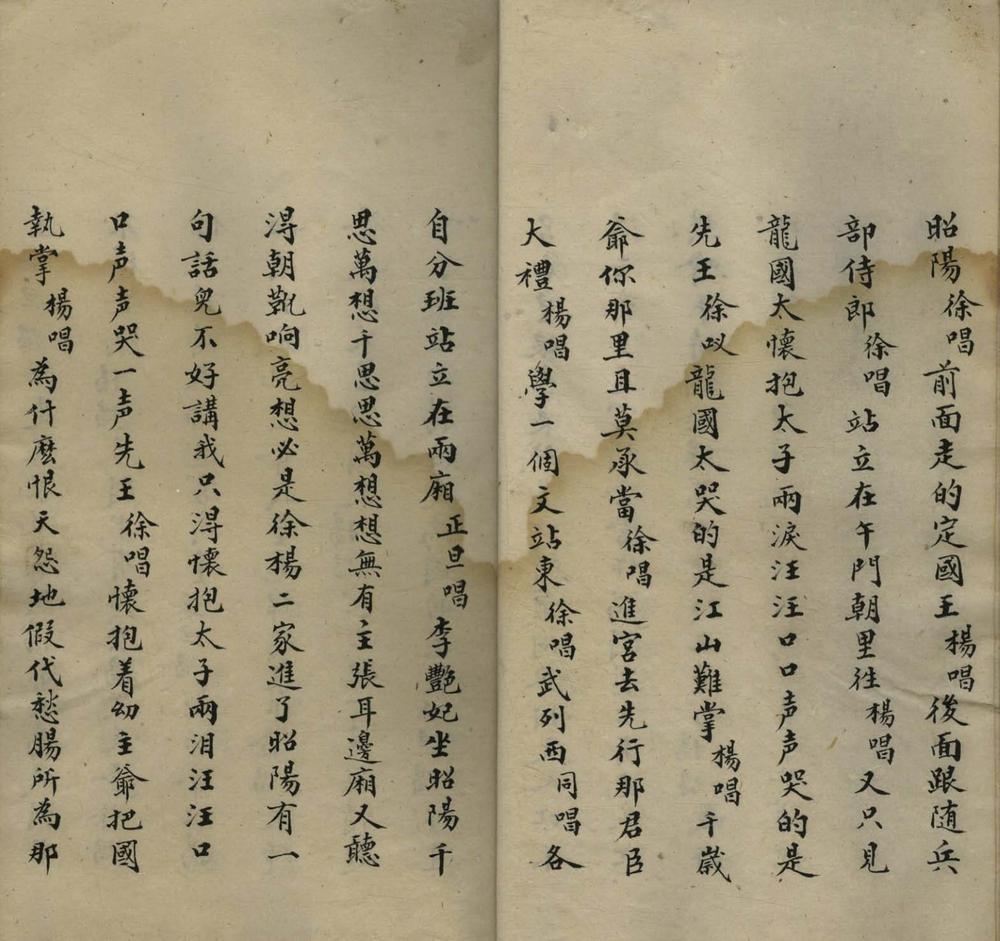 昭陽徐唱前面走的定國王楊唱後面跟随兵
部侍郎徐唱站立在午門朝里徃楊唱又只見
龍國太懷抱太子兩淚汪汪口口声声哭的是
先王徐㕝龍國太哭的是江山難掌楊唱千歲
爺你那里且莫承當徐唱進宫去先行那君臣
大禮楊唱學一個文站東徐唱武列西同唱各
自分班站立在兩廂正旦唱李艷妃坐昭陽千
思萬想千思思萬想想無有主張耳邊廂又聽
淂朝靴响亮想必是徐楊二家進了昭陽有一
句話兒不好講我只淂懷抱太子兩泪汪汪口
口声声哭一声先王徐唱懷抱着幼主爺把國
執掌楊唱為什麽恨天怨地假代愁腸所為那